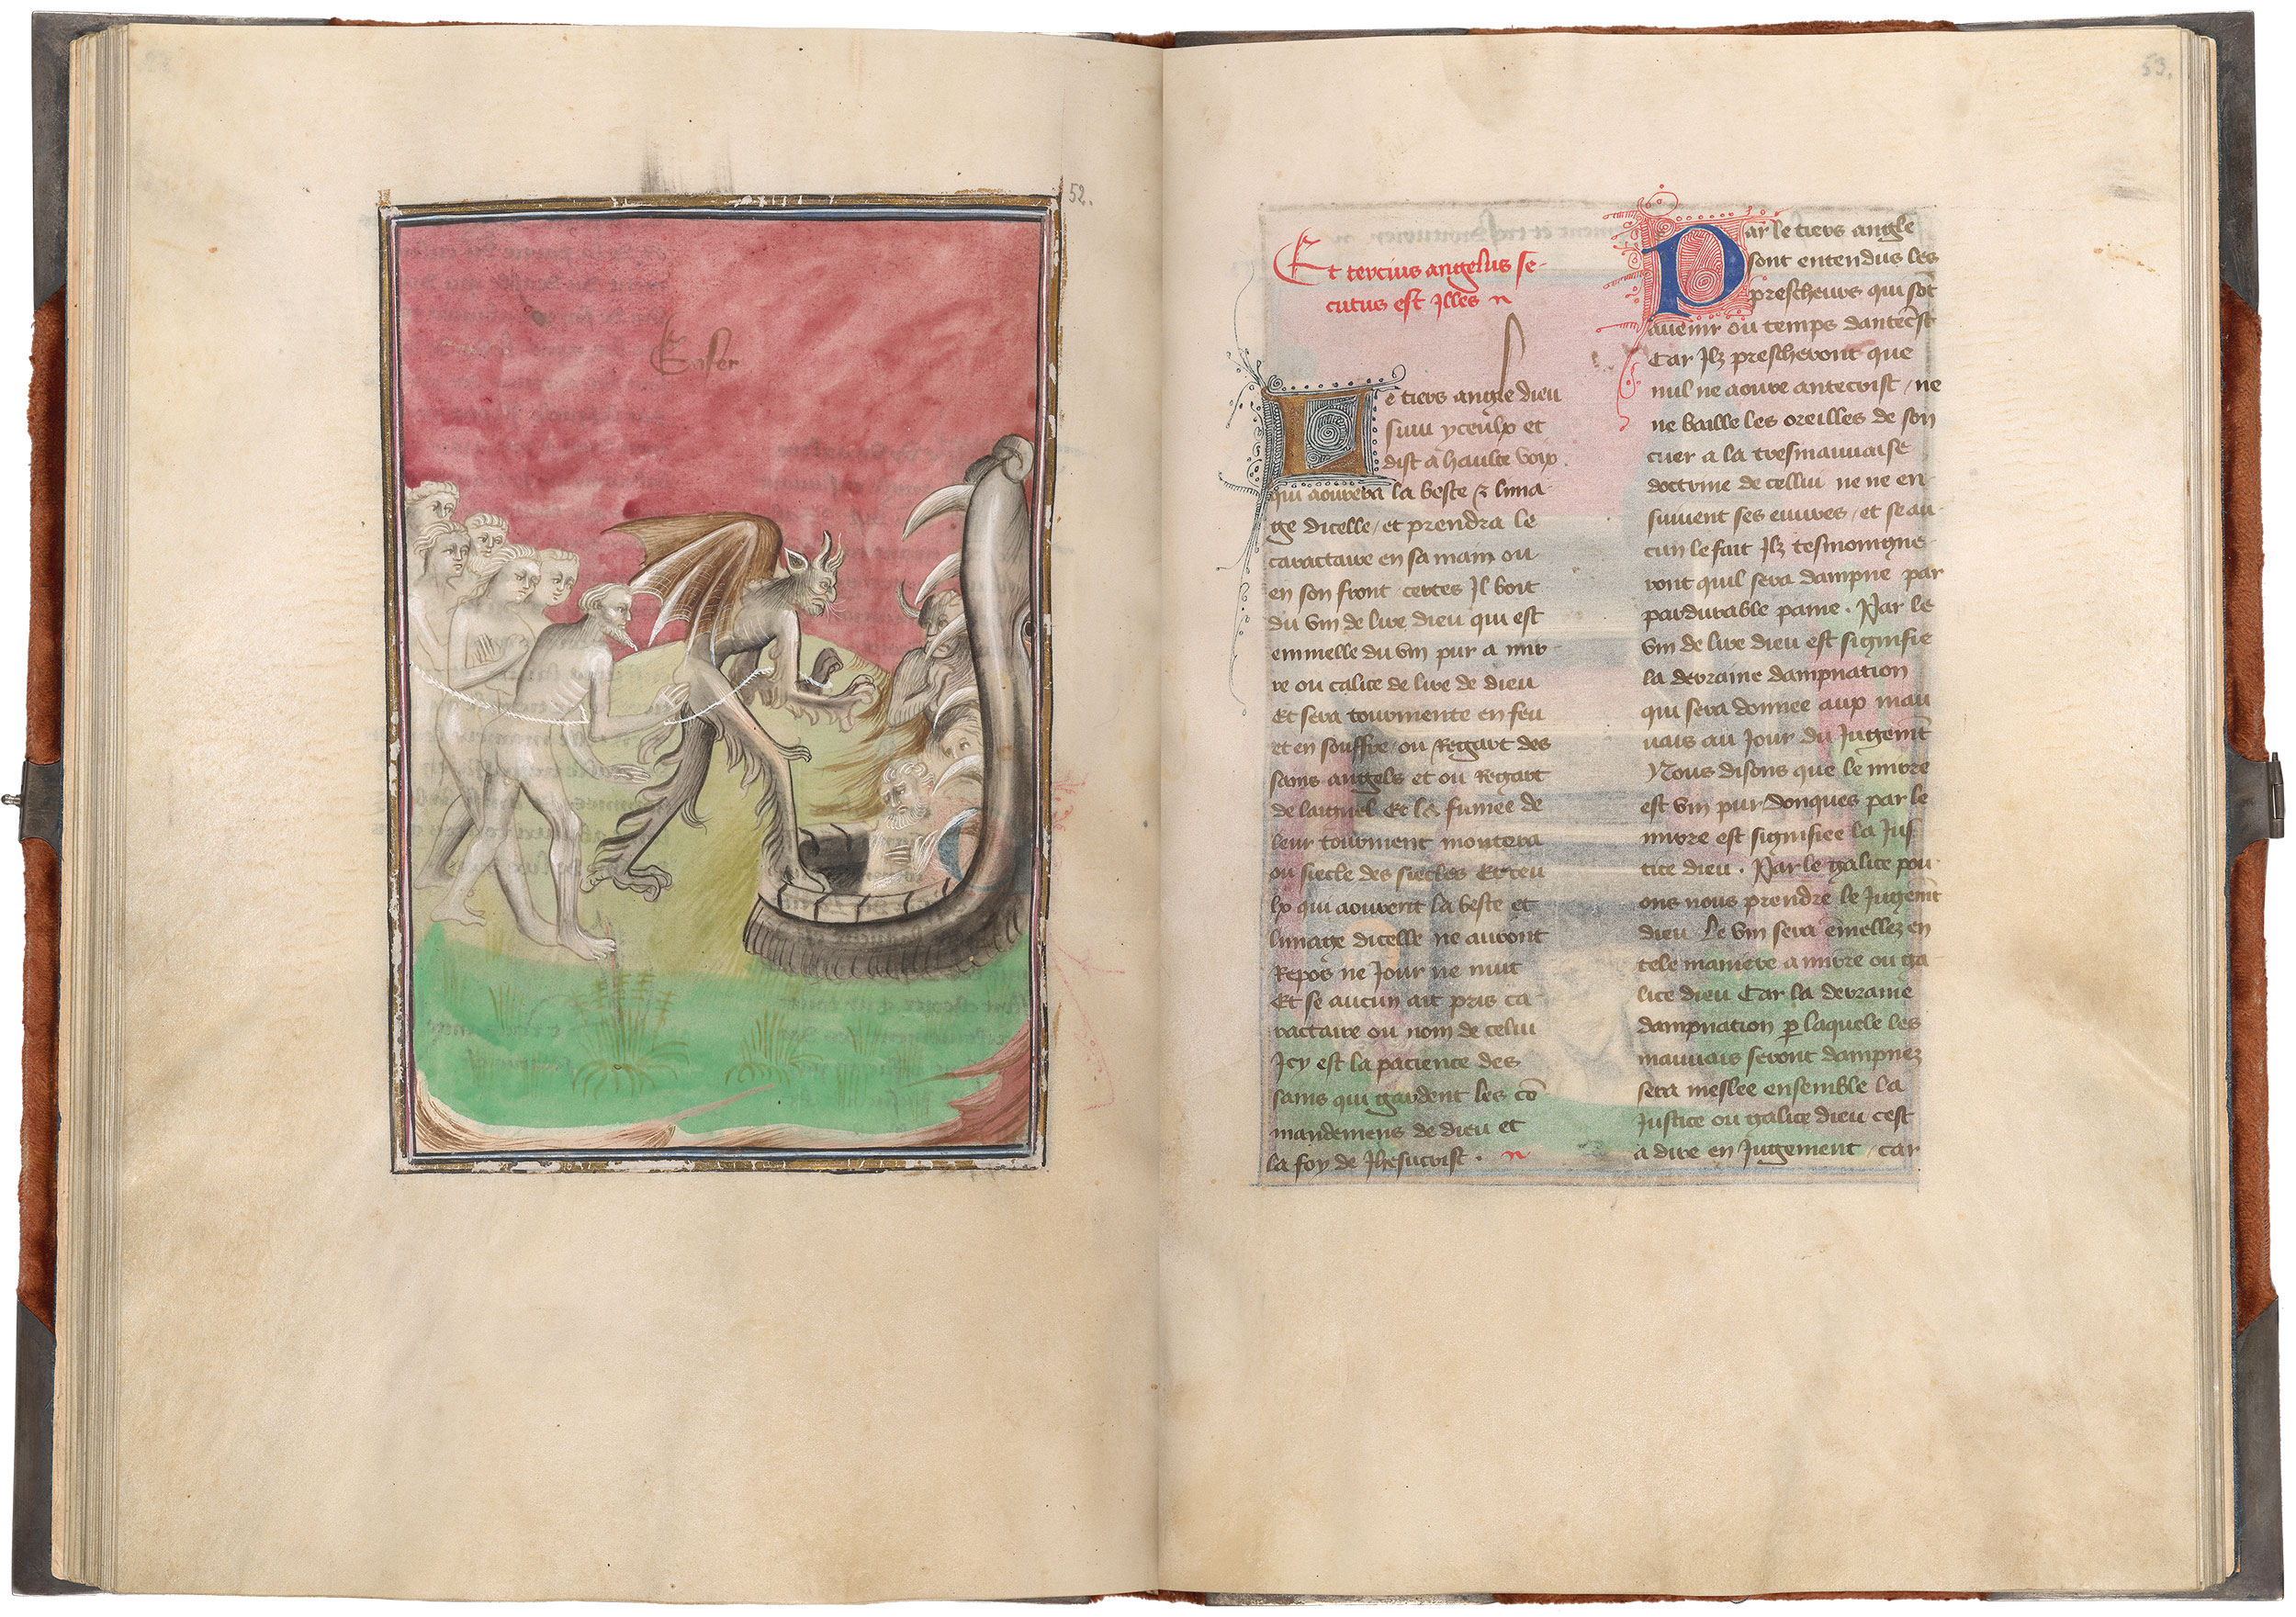 52.
Enfer
53.
Et tercius angelus se-
cutus est Illes
Le tiers angle dieu
suiu yceulx et
dist a haulte voix
qui aourera la beste & lima
ge dicelle / et prendra le
caractaire en sa main ou
en son front certes Il boit
du vin de lire dieu qui est
emmelle du vin pur a mir
re ou calice de lire de dieu
Et sera tourmente en feu
et en souffre / ou Regart des
sains angels et ou Regart
de laignel Et la fumee de
leur tourment montera
ou siecle des siecles Et ceu
lx qui aourent la beste et
limage dicelle ne auront
Repos ne Jour ne nuit
Et se aucun ait pris ca
ractaire ou nom de celui
Icy est la pacience des
sains qui gardent les cō
mandemens de dieu et
la foy de Jhesucrist .
Par le tiers angle
sont entendus les
prescheurs qui sōt
auenir ou temps dantecst
Car Ilz prescheront que
nul ne aoure antecrist / ne
ne baille les oreilles de son
cuer a la tresmauuaise
doctrine de cellui ne ne en
suiuent ses euures / et se au
cun le fait Ilz tesmoingne
ront quil sera dampne par
pardurable paine . Par le
vin de lire dieu est signifie
la derraine dampnation
qui sera donnee aux mau
uais au Jour du Jugemt
Nous disons que le mirre
est vin pur donques par le
mirre est signifiee la Jus
tice dieu . Par le galice pou
ons nous prendre le Jugemt
dieu Le vin sera ēmellez en
tele maniere a mirre ou ga
lice dieu Car la derraine
dampnation p laquele les
mauuais seront dampnez
sera meslee ensemble la
Justice ou galice dieu cest
a dire en Jugement / car